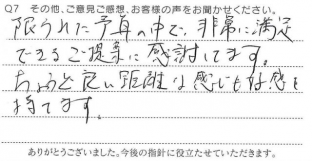 Q7 その他、ご意見ご感想、お客様の声をお聞かせください。
限られた予算の中で、非常に満足
できるご提案に感謝してます。
ちょうど良い距離な感じも好感を
持てます。
ありがとうございました。今後の指針に役立たせていただきます。